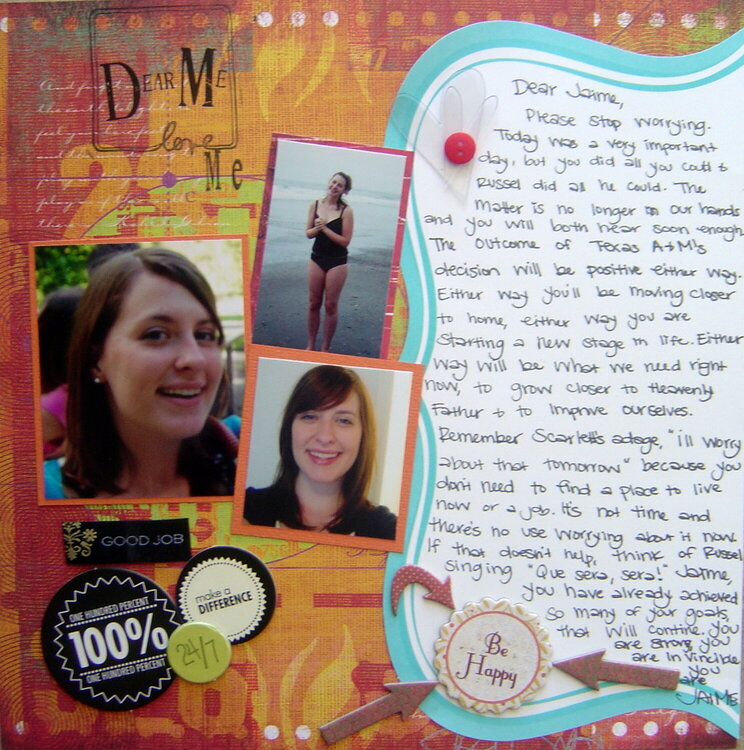 DEAR ME
love
Me
Dear Jaime,
Please stop worrying.
Today was a very important
day, but you did all you could &
Russel did all he could. The
matter is no longer in our hands
and you will both hear soon enough.
The outcome of Texas A+M's
decision will be positive either way.
Either way you'll be moving closer
to home, either way you are
starting a new stage in life. Either
way will be what we need right
now, to grow closer to Heavenly
Father & to improve ourselves.
Remember Scarlett's adage, "I'll worry
about that tomorrow" because you
don't need to find a place to live
now or a job. It's not time and
there's no use worrying about it now.
If that doesn't help, think of Russel
singing "Que sera, sera!" Jaime,
you have already achieved
so many of your goals,
that will contine. you
are strong, you
are invincible
you
are
JAIME
GOOD JOB
make a
DIFFERENCE
ONE HUNDRED PERCENT
100%
ONE HUNDRED PERCENT
24/7
Be
Happy